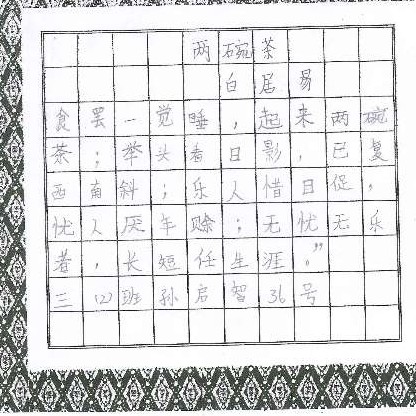 两碗茶
白居易
食罢一觉睡，起来两碗
茶；举头看日影，已复
西南斜；乐人惜日促，
忧人厌年赊；无忧无乐
者，长短任生涯。”
三(2)班孙启智36号